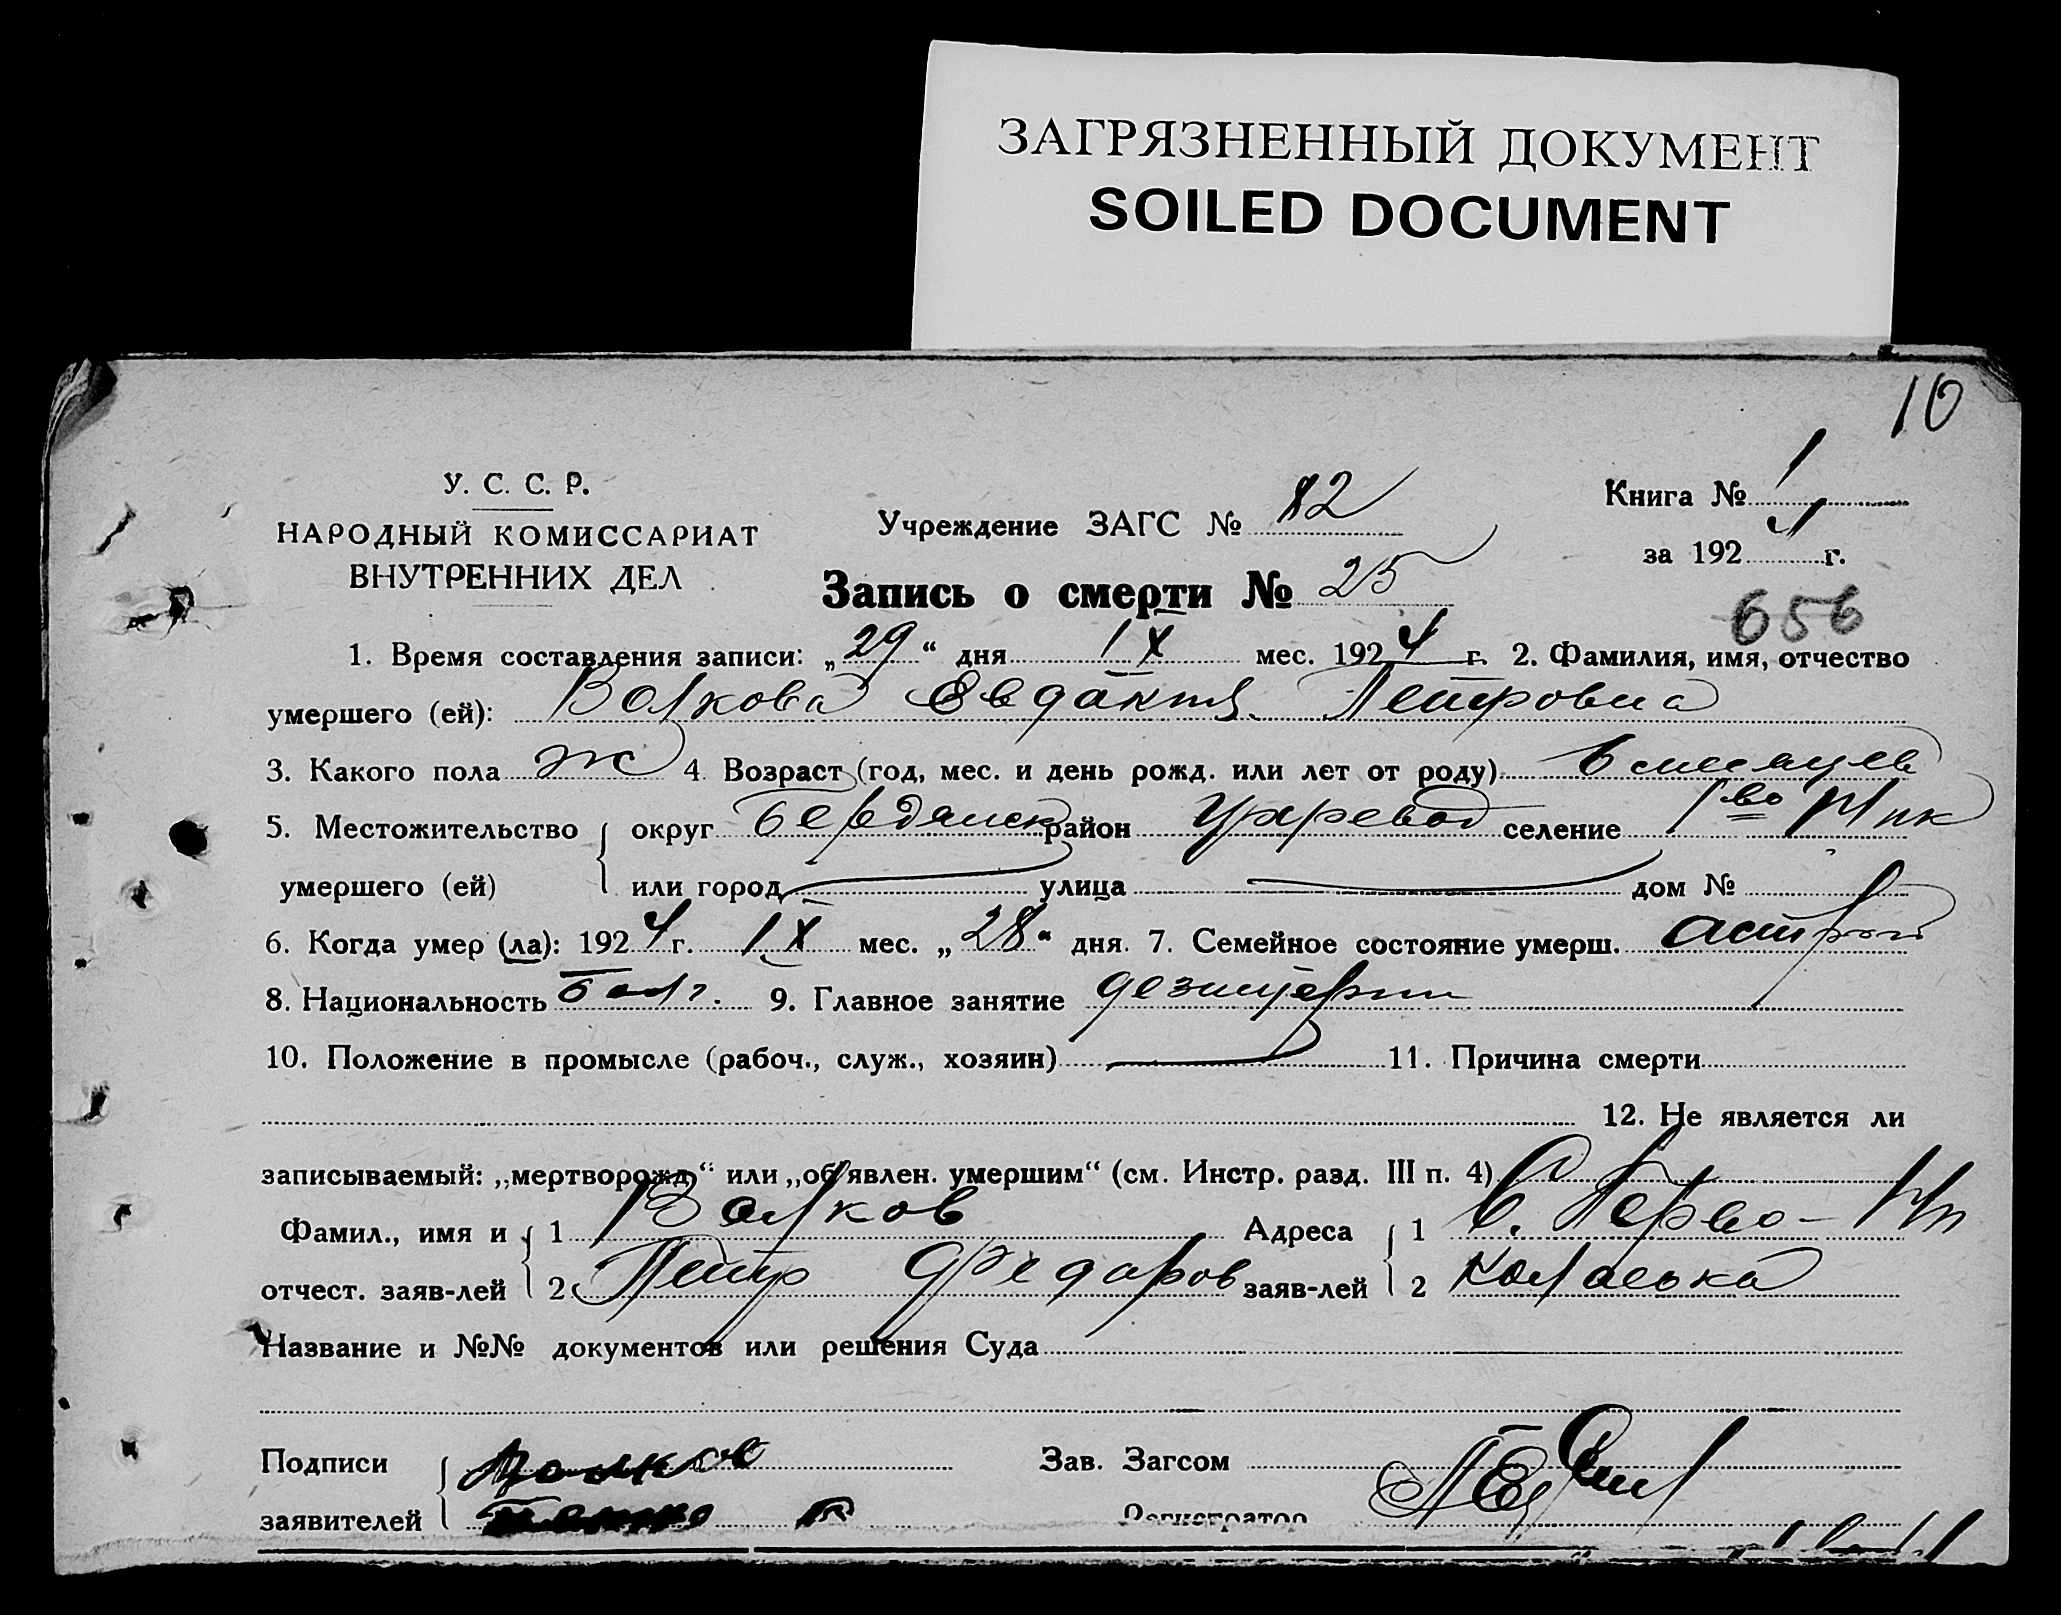 ЗАГРЯЗНЕННЫЙ ДОКУМЕНТ
SOILED DOCUMENT
10
У. С. С. Р.
НАРОДНЫЙ КОМИССАРИАТ
ВНУТРЕННИХ ДЕЛ
Учреждение ЗАГС № 12
Книга № 1
за 1924 г.
Запись о смерти № 25
656
1. Время составления записи: „29“ дня IX мес. 1924 г. 2. Фамилия, имя, отчество
умершего (ей): Волкова Евдактя Петровна
3. Какого пола ж 4. Возраст (год, мес. и день рожд. или лет от роду) 6 месяцев
5. Местожительство { округ Бердянск район Царевод селение 1во Ник
умершего (ей) { или город улица дом №
6. Когда умер (ла): 1924 г. IX мес. „28“ дня. 7. Семейное состояние умерш.
8. Национальность Болг. 9. Главное занятие
10. Положение в промысле (рабоч., служ., хозяин) 11. Причина смерти
12. Не является ли
записываемый: „мертворожд.“ или „об'явлен. умершим“ (см. Инстр. разд. III п. 4)
Фамил., имя и { 1 Волков Адреса { 1 с. Перво-Ни
отчест. заяв-лей { 2 Петр Федоров заяв-лей { 2 колаевка
Название и №№ документов или решения Суда
Подписи { Волков Зав. Загсом
заявителей { Регистратор